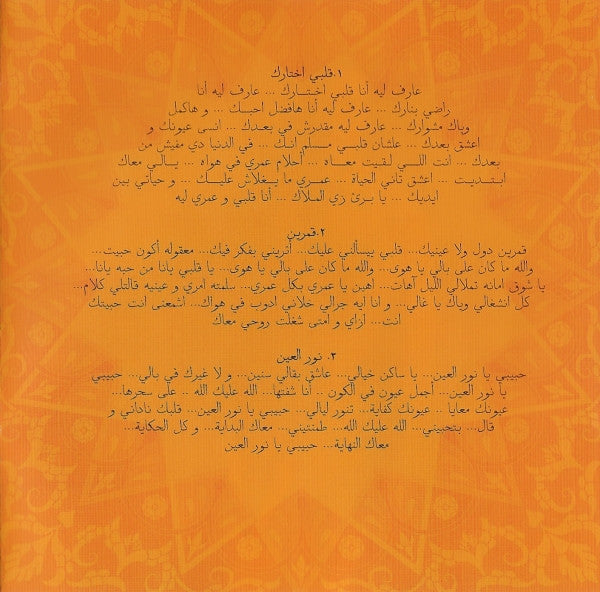 ١.قلبي اختارك
عارف ليه أنا قلبي اختـــارك ... عارف ليه أنا
راضي بنارك ... عارف ليه أنا هافضل احبـــك ... و هاكمل
وياك مشوارك ... عارف ليه مقدرش في بعدك ... انسى عيونك و
اعشق بعدك ... علشان قلبـــي مـــسلم انـــك ... في الدنيا دي مفيش من
بعدك ... انت اللـــي لـقيـت معـــاه ... أحلام عمري في هواه ... يـالـي معاك
ابتـــديـــت ... اعشق تاني الحياة ... عمـــري ما يـــغلاش عليـــك ... و حياتي بين
ايديك ... يا بـــرئ زي الملاك ... أنا قلبي و عمري ليه
٢.قمرين
قمرين دول ولا عينيك... قلبي بيسألني عليك... أتريني بفكر فيك... معقوله أكون حبيت...
والله ما كان على بالي يا هوى... والله ما كان على بالي يا هوى... يا قلبي يانا من حبه يانا...
يا شوق امانه تملالي الليل آهات... أهين يا عمري بكل عمري... سلمته امري و عينيه قالتلي كلام...
كل انشغالي وياك يا غالي... و انا ايه جرالي خلاني ادوب في هواك... اشمعنى انت حبيتك
انت... ازاي و امتى شغلت روحي معاك
٣. نور العين
حبيبي يا نور العين... يا ساكن خيالي... عاشق بقالي سنين... و لا غيرك في بالي... حبيبي
يا نور العين... أجمل عيون في الكون .. أنا شفتها... الله عليك الله .. على سحرها...
عيونك معايا .. عيونك كفاية... تنور ليالي... حبيبي يا نور العين... قلبك ناداني و
قال... بتحبيني... الله عليك الله... طمنتيني... معاك البداية... و كل الحكاية...
معاك النهاية... حبيبي يا نور العين